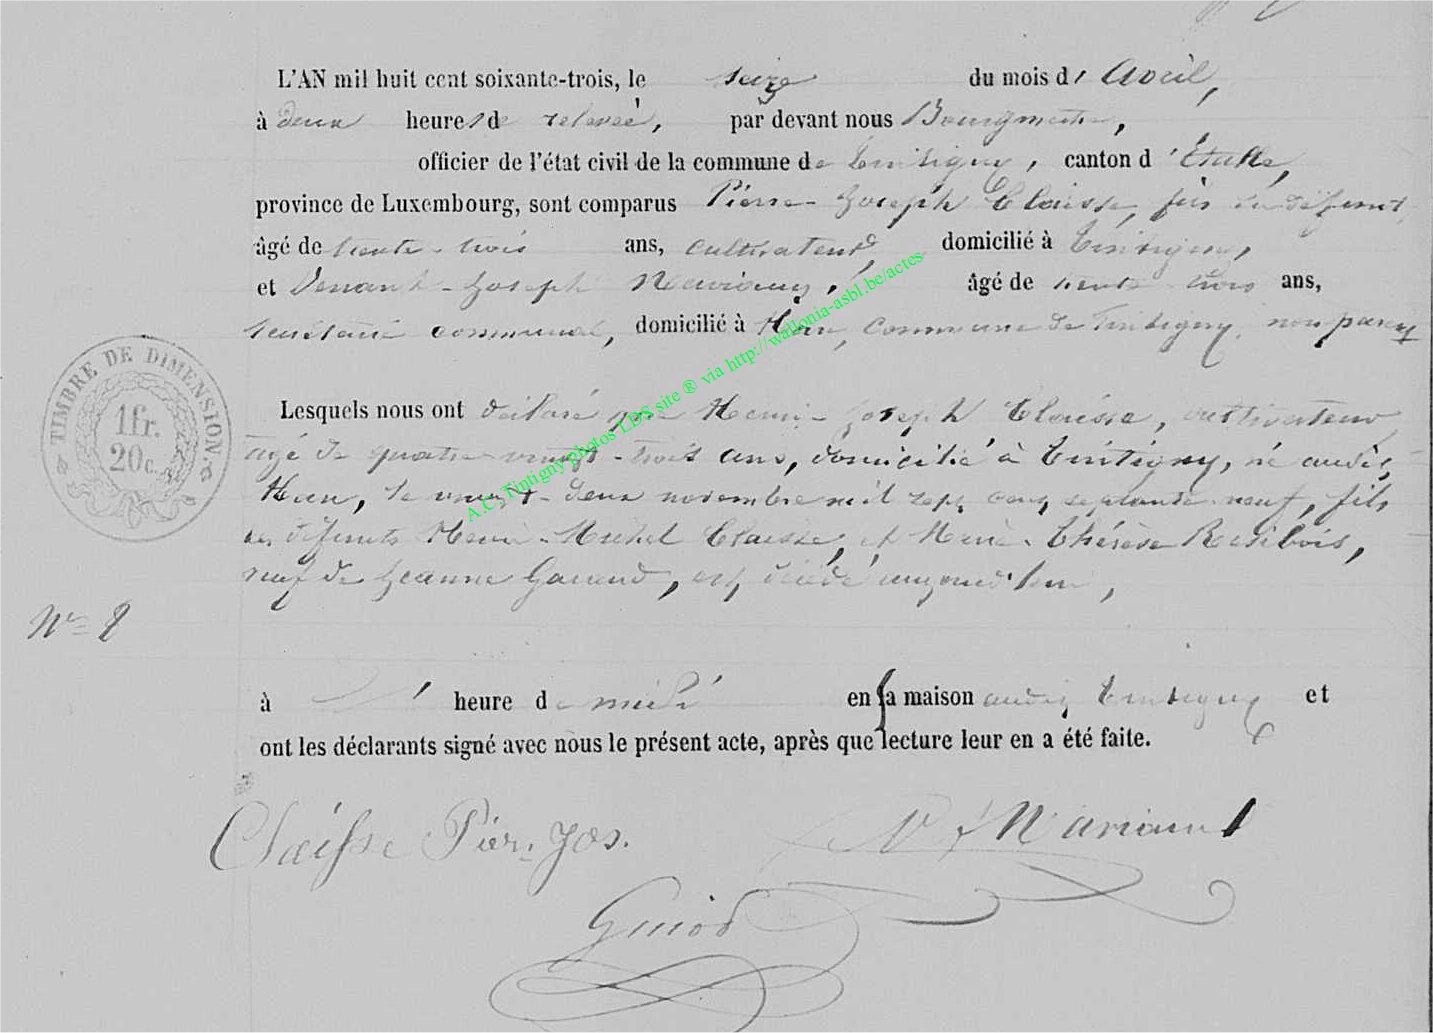 L'AN mil huit cent soixante-trois, le seize du mois d'Avril,
à deux heures de relevée, par devant nous Bourgmestre,
officier de l'état civil de la commune de Tintigny, canton d'Etalle,
province de Luxembourg, sont comparus Pierre-Joseph Claisse, fils du défunt,
âgé de trente-trois ans, cultivateur, domicilié à Tintigny,
et Joseph âgé de trente-trois ans,
secrétaire communal, domicilié à Han, commune de Tintigny, non parent
TIMBRE DE DIMENSION.
1fr.
20c.
Lesquels nous ont déclaré que Henri-Joseph Claisse, cultivateur
âgé de quatre-vingt-trois ans, domicilié à Tintigny, né audit
Han, le vingt-deux novembre mil sept cent septante-neuf, fils
des défunts Henri-Michel Claisse, et Marie-Thérèse
veuf de Jeanne est décédé aujourd'hui,
N° 8
à heure de midi en sa maison audit Tintigny et
ont les déclarants signé avec nous le présent acte, après que lecture leur en a été faite.
Claisse Pier. Jos.
A.C. Tintigny photos LDS site ® via http://wallonia-asbl.be/actes